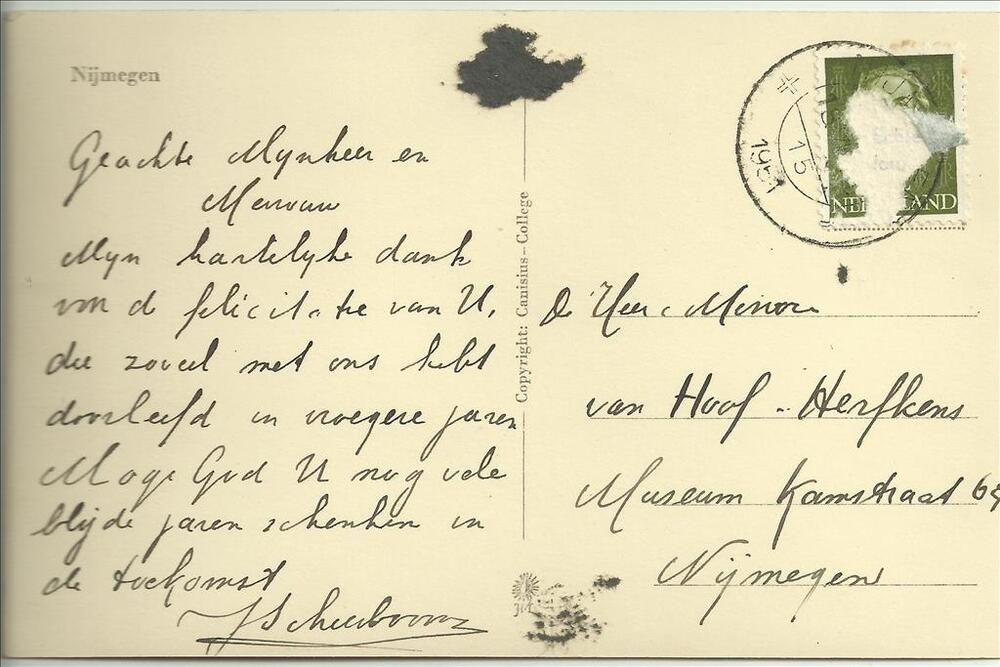 Nijmegen
Geachte Mynheer en
Mevrouw
Myn hartelyke dank
von de felicitatie van U,
die zoveel met ons hebt
doorleefd in vroegere jaren
Moge God U nog vele
blijde jaren schenken in
de toekomst
Copyright: Canisius-College
JM
15
195
NEDERLAND
De Heer & Mevrouw
van Hoof - Herfkens
Museum Kamstraat 6
Nijmegen